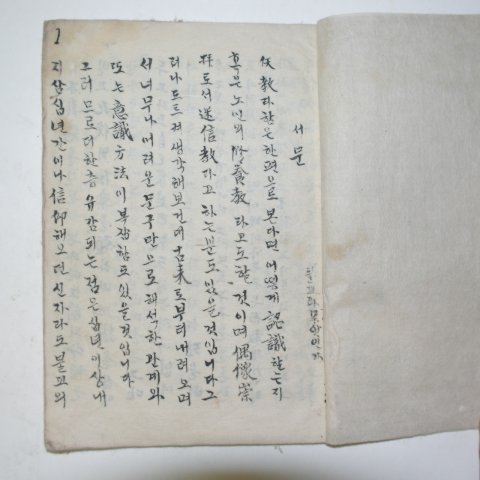 서문
佛教라 함은 한편으로 본다면 어떻게 認識할는지
혹은 노인의 修養教라고도 할 것이며 偶像崇
拜로서 迷信教라고 하는 분도 있을 것입니다 그
러나 드드려 생각해 보건대 古来로부터 내려오며
서 너무나 어려운 문구만으로 해석한 관계와
또는 意識方法이 복잡함도 있을 것입니다
그러므로 더한층 유감되는 점은 십년 이상 내
지 삼십년간이나 信仰해 오던 신자라도 불교의
1
불교란 무엇인가